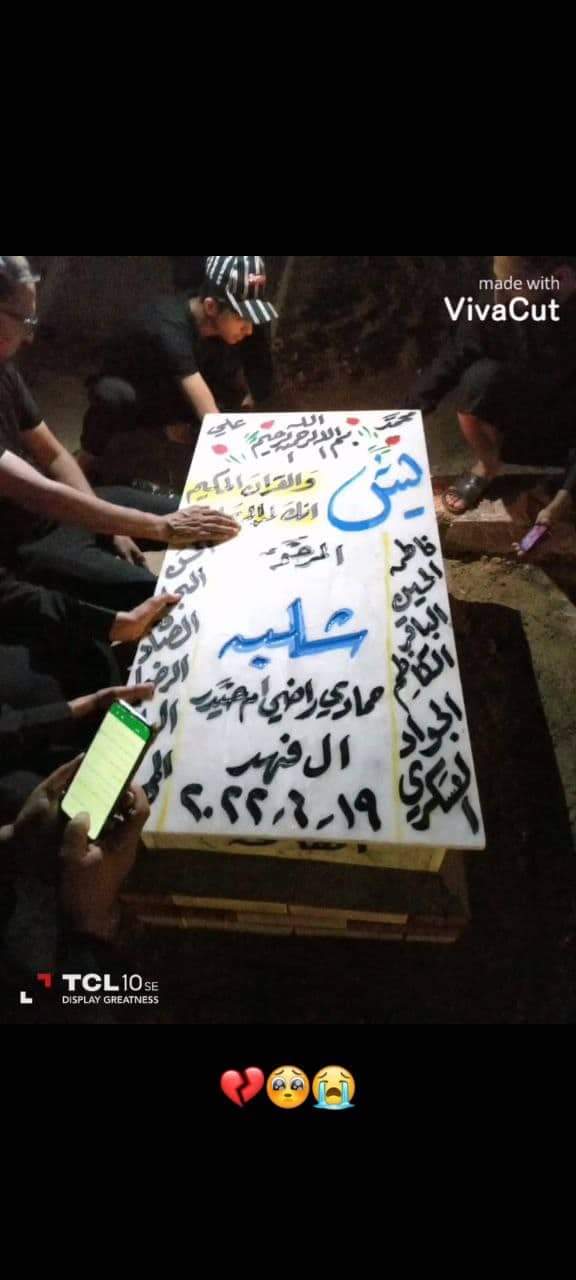 made with
VivaCut
محمد
الله
علي
بسم الله الرحمن الرحيم
يس
والقران الحكيم
انك لمن
المرحومة
شلبه
حمادي راضي ام حيدر
ال فهد
١٩-٤-٢٠٢٢
فاطمه
الحسين
الباقر
الكاظم
الجواد
العسكري
الصادق
الرضا
TCL 10 SE
DISPLAY GREATNESS
💔🥺😭